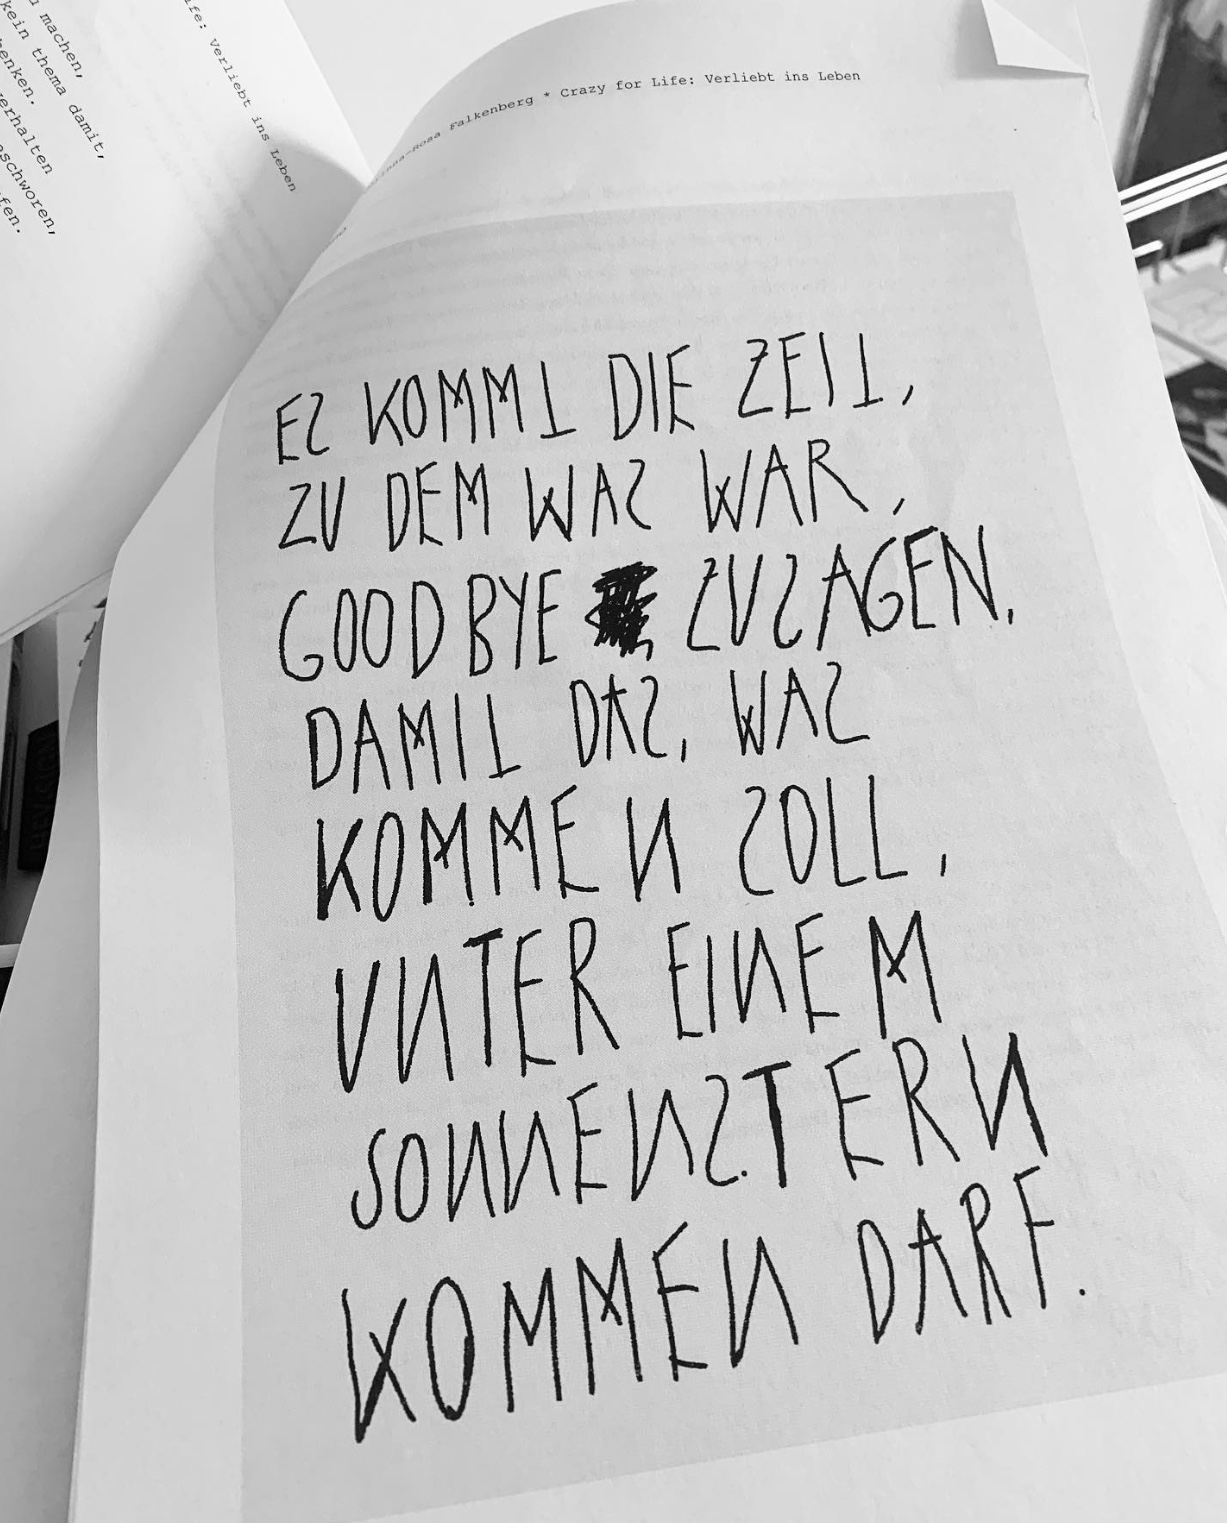 machen,
kein thema damit,
verhalten
Verliebt ins Leben
Falkenberg * Crazy for Life: Verliebt ins Leben
ES KOMMT DIE ZEIT,
ZU DEM WAS WAR,
GOODBYE ZUSAGEN.
DAMIT DAS, WAS
KOMMEN SOLL,
UNTER EINEM
SONNENSTERN
KOMMEN DARF.